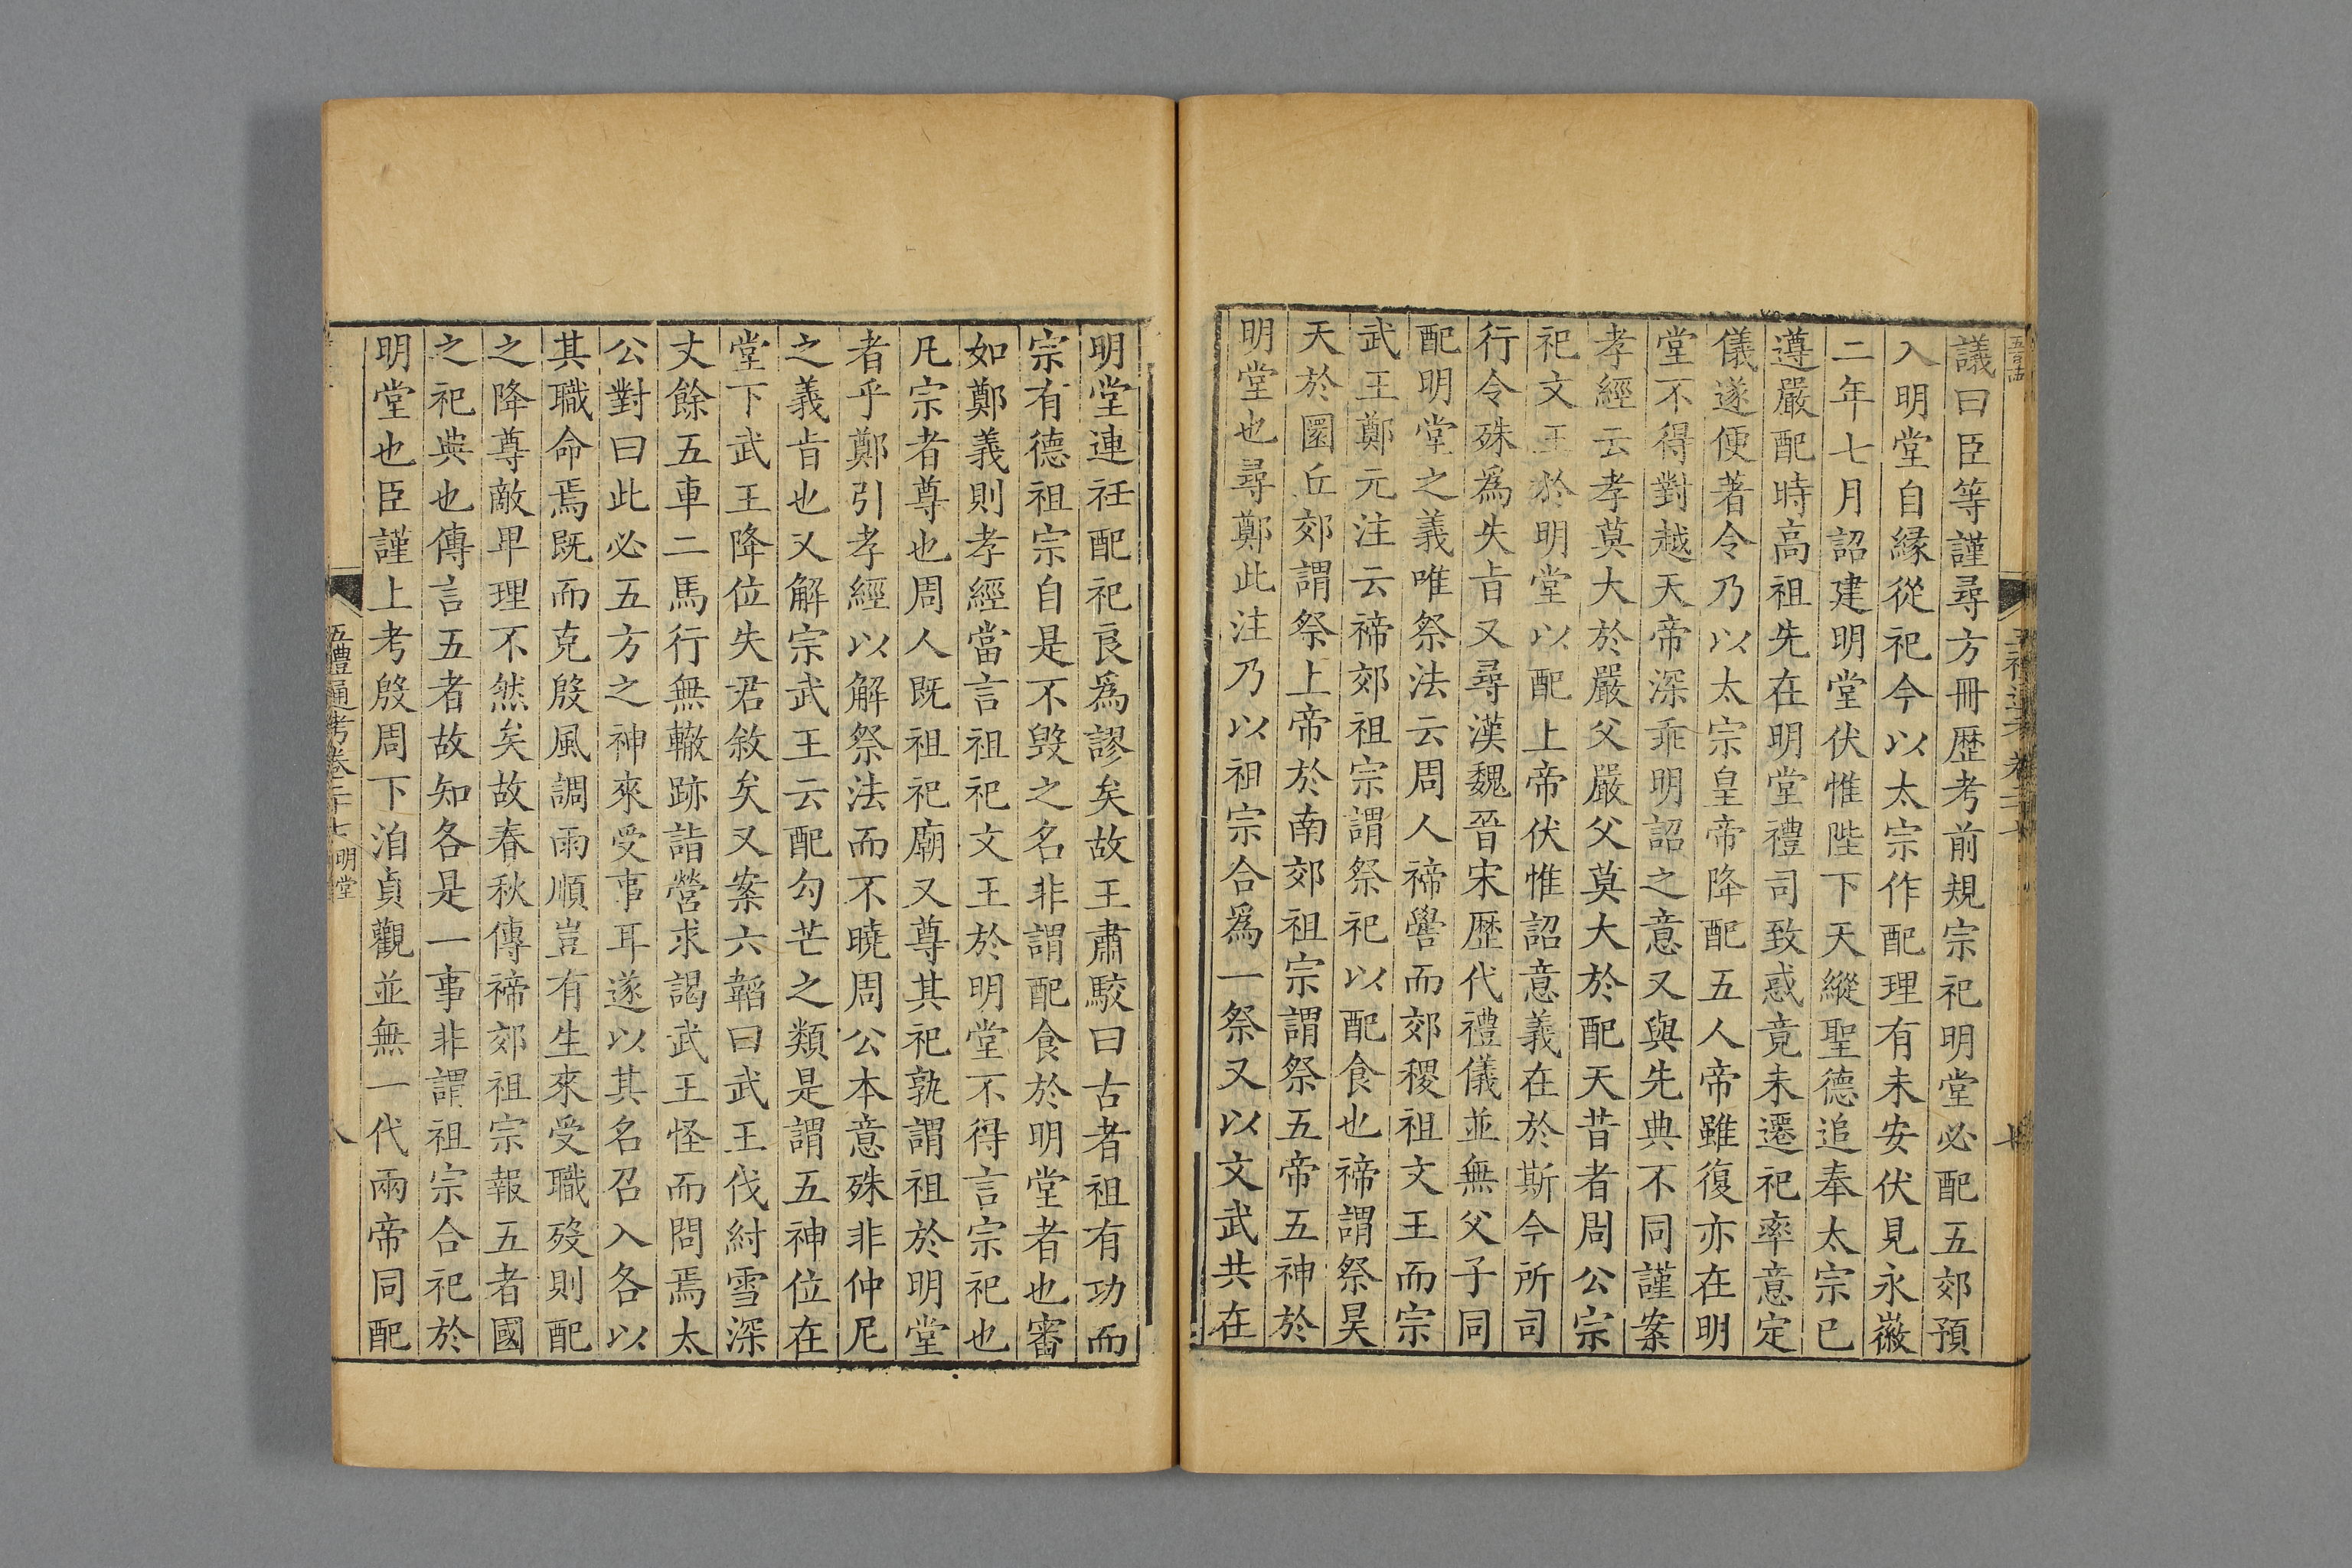 議曰臣等謹尋方冊歴考前規宗祀明堂必配五郊預
入明堂自縁從祀今以太宗作配理有未安伏見永徽
二年七月詔建明堂伏惟陛下天縱聖德追奉太宗已
遵嚴配時高祖先在明堂禮司致惑竟未遷祀率意定
儀遂便著令乃以太宗皇帝降配五人帝雖復亦在明
堂不得對越天帝深乖明詔之意又與先典不同謹案
孝經云孝莫大於嚴父嚴父莫大於配天昔者周公宗
祀文王於明堂以配上帝伏惟詔意義在於斯今所司
行令殊為失㫖又尋漢魏晉宋歴代禮儀並無父子同
配明堂之義唯祭法云周人禘嚳而郊稷祖文王而宗
武王鄭元注云禘郊祖宗謂祭祀以配食也禘謂祭昊
天於圜丘郊謂祭上帝於南郊祖宗謂祭五帝五神於
明堂也尋鄭此注乃以祖宗合為一祭又以文武共在
明堂連祍配祀良為謬矣故王肅駮曰古者祖有功而
宗有德祖宗自是不毁之名非謂配食於明堂者也審
如鄭義則孝經當言祖祀文王於明堂不得言宗祀也
凡宗者尊也周人既祖祀廟又尊其祀孰謂祖於明堂
者乎鄭引孝經以解祭法而不曉周公本意殊非仲尼
之義㫖也又解宗武王云配勾芒之類是謂五神位在
堂下武王降位失君敘矣又案六韜曰武王伐紂雪深
丈餘五車二馬行無轍跡詣營求謁武王怪而問焉太
公對曰此必五方之神來受事耳遂以其名召入各以
其職命焉既而克殷風調雨順豈有生來受職歿則配
之降尊敵卑理不然矣故春秋傳禘郊祖宗報五者國
之祀典也傳言五者故知各是一事非謂祖宗合祀於
明堂也臣謹上考殷周下洎貞觀並無一代兩帝同配
五禮通考卷二十七 明堂 八